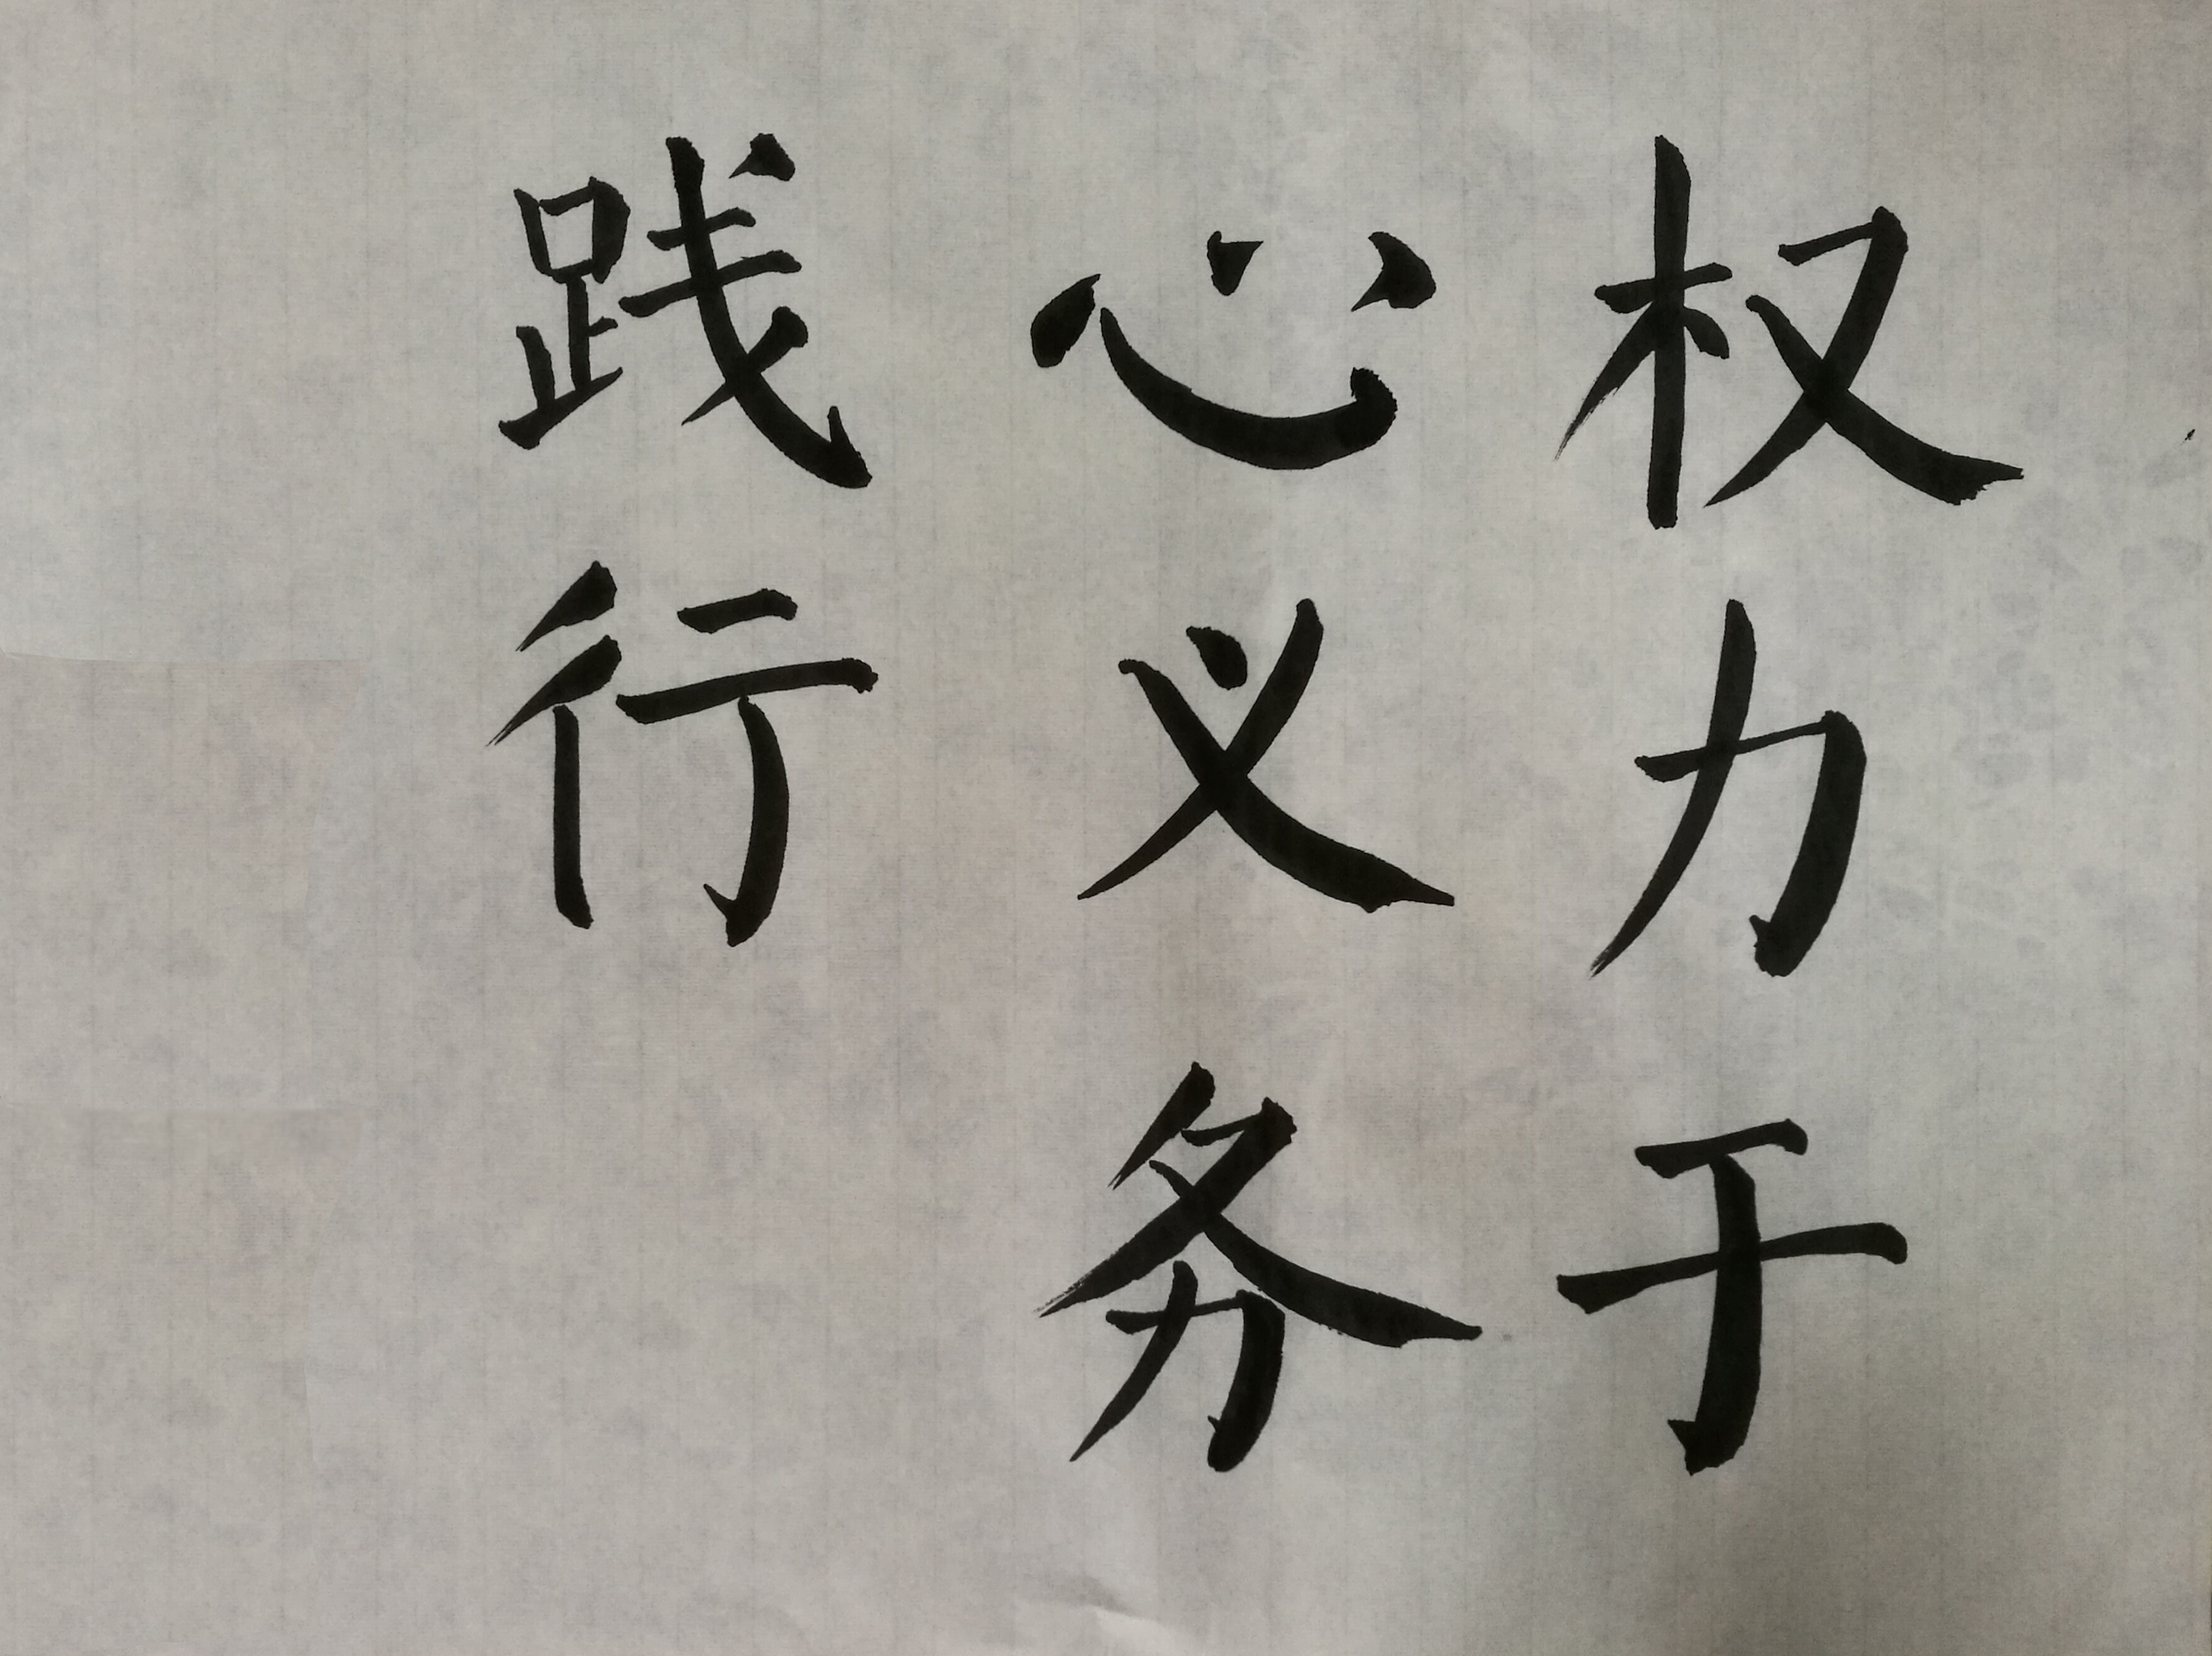 权力于
心义务
践行